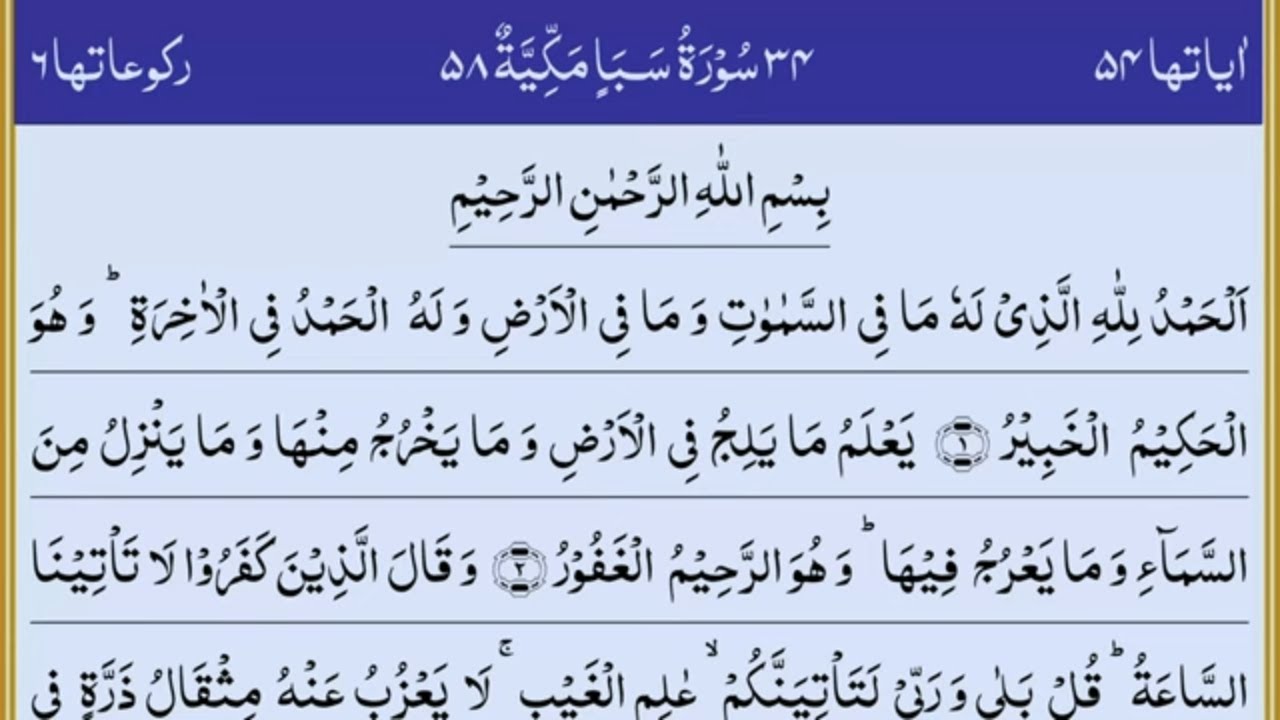 اٰیاتها ۵۴ ۳۴ سُوْرَةُ سَبَاٍ مَكِّیَّةٌ ۵۸ ركوعاتها ۶
بِسْمِ اللّٰهِ الرَّحْمٰنِ الرَّحِیْمِ
اَلْحَمْدُ لِلّٰهِ الَّذِیْ لَهٗ مَا فِی السَّمٰوٰتِ وَ مَا فِی الْاَرْضِ وَ لَهُ الْحَمْدُ فِی الْاٰخِرَةِ ؕ وَ هُوَ
الْحَكِیْمُ الْخَبِیْرُ ۝۱ یَعْلَمُ مَا یَلِجُ فِی الْاَرْضِ وَ مَا یَخْرُجُ مِنْهَا وَ مَا یَنْزِلُ مِنَ
السَّمَآءِ وَ مَا یَعْرُجُ فِیْهَا ؕ وَ هُوَ الرَّحِیْمُ الْغَفُوْرُ ۝۲ وَ قَالَ الَّذِیْنَ كَفَرُوْا لَا تَاْتِیْنَا
السَّاعَةُ ؕ قُلْ بَلٰی وَ رَبِّیْ لَتَاْتِیَنَّكُمْ ۙ عٰلِمِ الْغَیْبِ ۚ لَا یَعْزُبُ عَنْهُ مِثْقَالُ ذَرَّةٍ فِی